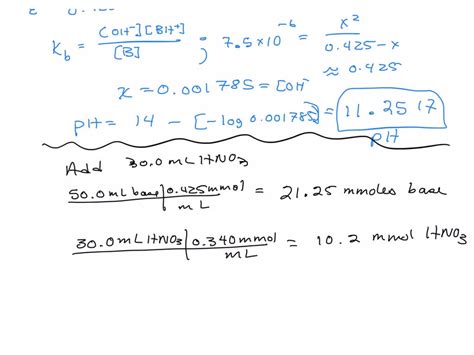 K_b = [OH⁻][BH⁺] / [B] ; 7.5×10⁻⁶ = x² / 0.425-x
≈ 0.425
x = 0.001785 = [OH⁻
pH = 14 - [-log 0.001785] = 11.2517
pH
Add 30.0 mL HNO₃
50.0 mL base | 0.425 mmol / mL = 21.25 mmoles base
30.0 mL HNO₃ | 0.340 mmol / mL = 10.2 mmol HNO₃